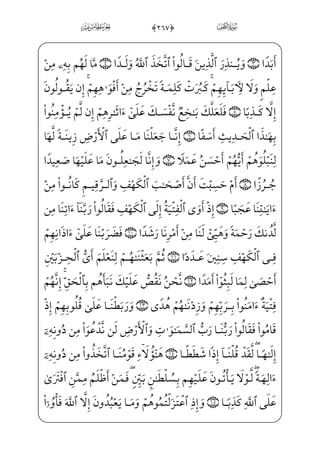 سُورَةُ الكَهْفِ ﴿٢٦٧﴾ الجُزْءُ الخَامِسَ عَشَرَ
أَبَدًا ۝٣ وَيُنذِرَ ٱلَّذِينَ قَالُوا۟ ٱتَّخَذَ ٱللَّهُ وَلَدًا ۝٤ مَّا لَهُم بِهِۦ مِنْ
عِلْمٍ وَلَا لِءَابَآئِهِمْ ۚ كَبُرَتْ كَلِمَةً تَخْرُجُ مِنْ أَفْوَٰهِهِمْ ۚ إِن يَقُولُونَ
إِلَّا كَذِبًا ۝٥ فَلَعَلَّكَ بَٰخِعٌ نَّفْسَكَ عَلَىٰٓ ءَاثَٰرِهِمْ إِن لَّمْ يُؤْمِنُوا۟
بِهَٰذَا ٱلْحَدِيثِ أَسَفًا ۝٦ إِنَّا جَعَلْنَا مَا عَلَى ٱلْأَرْضِ زِينَةً لَّهَا
لِنَبْلُوَهُمْ أَيُّهُمْ أَحْسَنُ عَمَلًا ۝٧ وَإِنَّا لَجَٰعِلُونَ مَا عَلَيْهَا صَعِيدًا
جُرُزًا ۝٨ أَمْ حَسِبْتَ أَنَّ أَصْحَٰبَ ٱلْكَهْفِ وَٱلرَّقِيمِ كَانُوا۟ مِنْ
ءَايَٰتِنَا عَجَبًا ۝٩ إِذْ أَوَى ٱلْفِتْيَةُ إِلَى ٱلْكَهْفِ فَقَالُوا۟ رَبَّنَآ ءَاتِنَا مِن
لَّدُنكَ رَحْمَةً وَهَيِّئْ لَنَا مِنْ أَمْرِنَا رَشَدًا ۝١٠ فَضَرَبْنَا عَلَىٰٓ ءَاذَانِهِمْ
فِى ٱلْكَهْفِ سِنِينَ عَدَدًا ۝١١ ثُمَّ بَعَثْنَٰهُمْ لِنَعْلَمَ أَىُّ ٱلْحِزْبَيْنِ
أَحْصَىٰ لِمَا لَبِثُوٓا۟ أَمَدًا ۝١٢ نَّحْنُ نَقُصُّ عَلَيْكَ نَبَأَهُم بِٱلْحَقِّ ۚ إِنَّهُمْ
فِتْيَةٌ ءَامَنُوا۟ بِرَبِّهِمْ وَزِدْنَٰهُمْ هُدًى ۝١٣ وَرَبَطْنَا عَلَىٰ قُلُوبِهِمْ إِذْ
قَامُوا۟ فَقَالُوا۟ رَبُّنَا رَبُّ ٱلسَّمَٰوَٰتِ وَٱلْأَرْضِ لَن نَّدْعُوَا۟ مِن دُونِهِۦٓ
إِلَٰهًا ۖ لَّقَدْ قُلْنَآ إِذًا شَطَطًا ۝١٤ هَٰٓؤُلَآءِ قَوْمُنَا ٱتَّخَذُوا۟ مِن دُونِهِۦٓ
ءَالِهَةً ۖ لَّوْلَا يَأْتُونَ عَلَيْهِم بِسُلْطَٰنٍۭ بَيِّنٍ ۖ فَمَنْ أَظْلَمُ مِمَّنِ ٱفْتَرَىٰ
عَلَى ٱللَّهِ كَذِبًا ۝١٥ وَإِذِ ٱعْتَزَلْتُمُوهُمْ وَمَا يَعْبُدُونَ إِلَّا ٱللَّهَ فَأْوُۥٓا۟